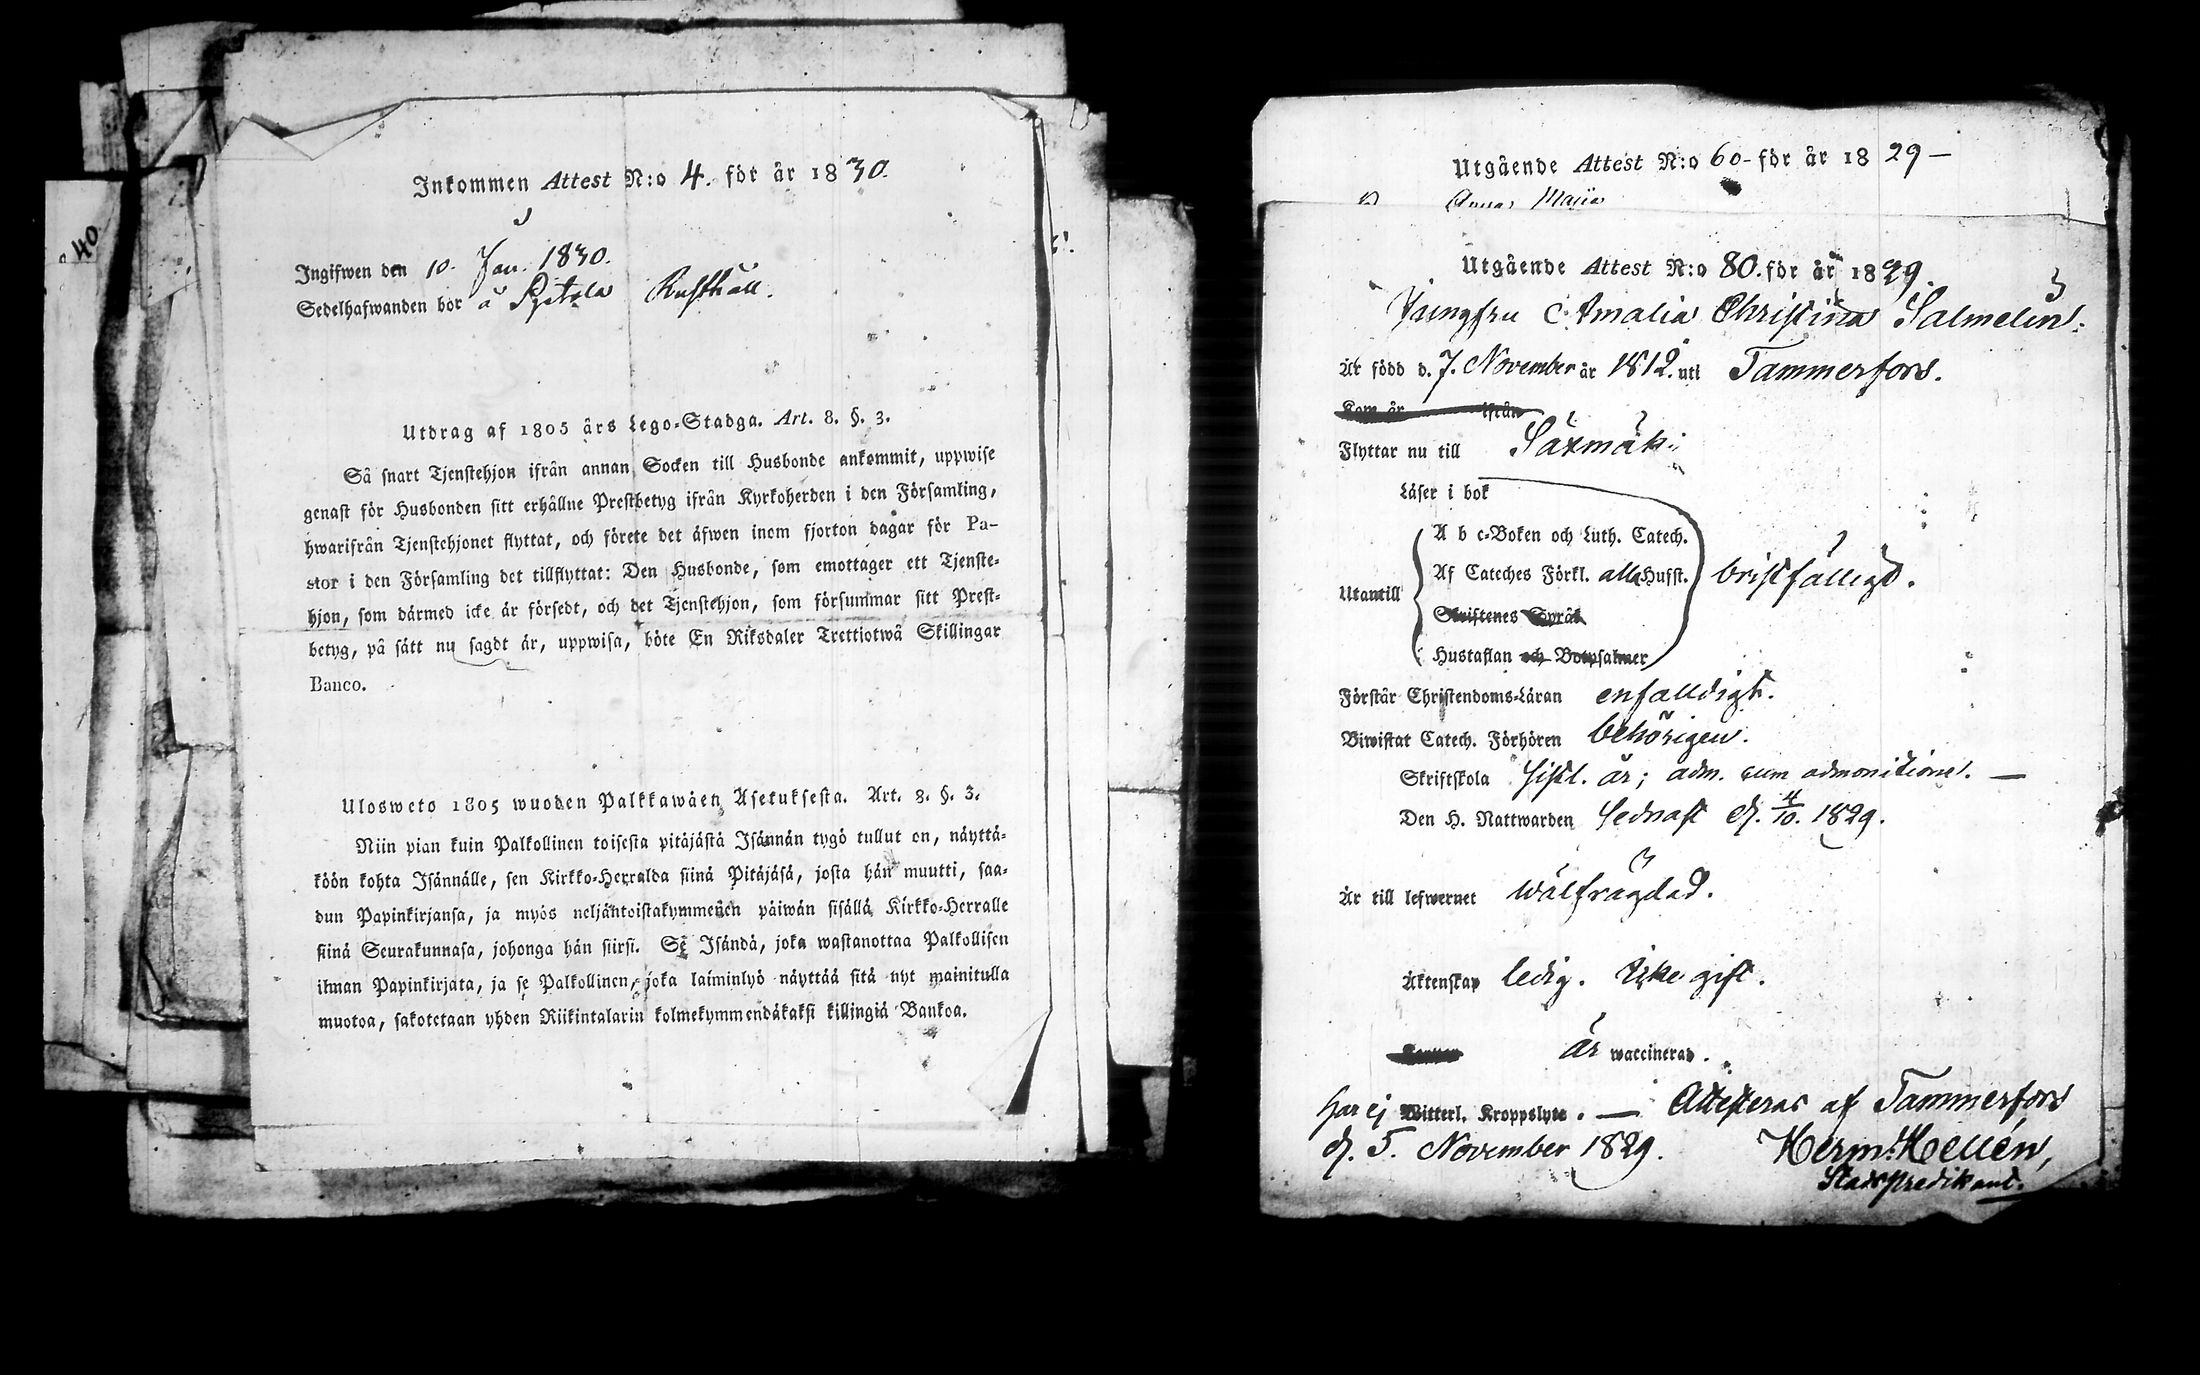 40
Inkommen Attest N:o 4. för år 1830.
Ingifwen den 10. Jan. 1830.
Sedelhafwanden bor å Rusthåll.
Utdrag af 1805 års Lego-Stadga. Art. 8. §. 3.
Så snart Tjenstehjon ifrån annan Socken till Husbonde ankommit, uppwise
genast för Husbonden sitt erhållne Prestbetyg ifrån Kyrkoherden i den Församling,
hwarifrån Tjenstehjonet flyttat, och förete det äfwen inom fjorton dagar för Pa-
stor i den Församling det tillflyttat: Den Husbonde, som emottager ett Tjenste-
hjon, som därmed icke är försedt, och det Tjenstehjon, som försummar sitt Prest-
betyg, på sätt nu sagdt är, uppwisa, böte En Riksdaler Trettiotwå Skillingar
Banco.
Ulosweto 1805 wuoden Palkkawäen Asetuksesta. Art. 8. §. 3.
Niin pian kuin Palkollinen toisesta pitäjästä Isännän tygö tullut on, näyttä-
köön kohta Isännälle, sen Kirkko-Herralda siinä Pitäjäsä, josta hän muutti, saa-
dun Papinkirjansa, ja myös neljäntoistakymmenen päiwän sisällä Kirkko-Herralle
siinä Seurakunnasa, johonga hän siirsi. Se Isändä, joka wastanottaa Palkollisen
ilman Papinkirjata, ja se Palkollinen, joka laiminlyö näyttää sitä nyt mainitulla
muotoa, sakotetaan yhden Riikintalarin kolmekymmendäkaksi killingiä Bankoa.
Utgående Attest N:o 60- för år 1829 —
Anna Maija
Utgående Attest N:o 80. för år 1829.
Jungfru Amalia Christina Salmelin.
Är född d. 7. November år 1812. uti Tammerfors.
Kom år ifrån
Flyttar nu till Säxmäki
Läser i bok
A b c-Boken och Luth. Catech.
Utantill Af Cateches Förkl. alla Hufst. bristfälligt.
Skriftenes Språk
Hustaflan och Botpsalmer
Förstår Christendoms-Läran enfalldigt.
Biwistat Catech. Förhören behörigen.
Skriftskola sistl. år; adm. cum admonitione. —
Den H. Nattwarden sednast d. 4/10. 1829.
Är till lefwernet wälfrägdad.
Äktenskap ledig. Icke gift.
är waccinerad.
Har ej Witterl. Kroppslyte. — Attesteras af Tammerfors
d. 5. November 1829. Herm. Hellén,
Stadspredikant.